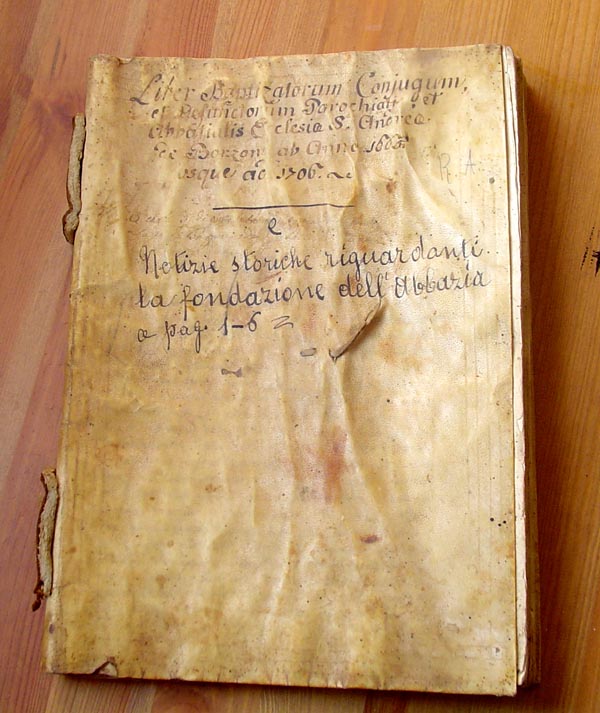 Liber Baptizatorum Conjugum,
et Defunctorum Parochiatt: et
Abbatialis Eclesia S. Andrea
Borzoni ab Anno 1603
usque ad 1706.
R A
e
Notizie storiche riguardanti
la fondazione dell'Abbazia
a pag. 1-6